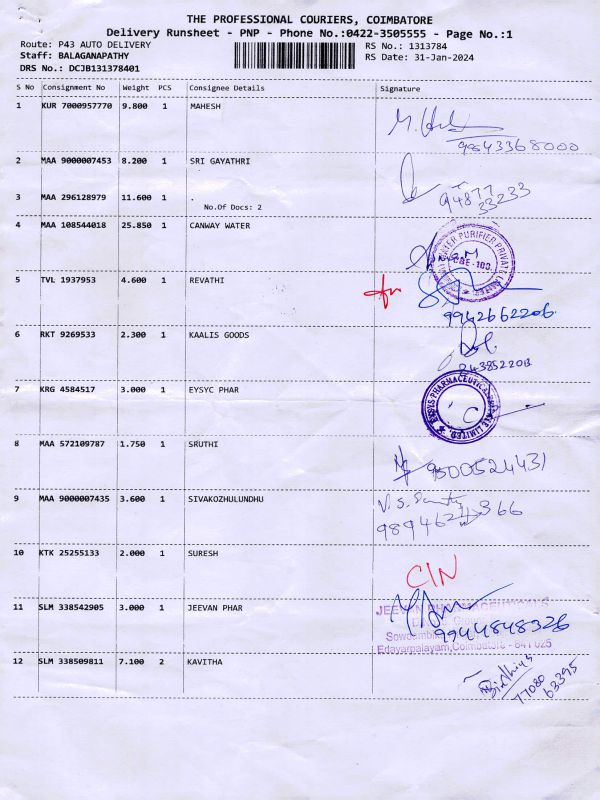 THE PROFESSIONAL COURIERS, COIMBATORE
Delivery Runsheet - PNP - Phone No.:0422-3505555 - Page No.:1
Route: P43 AUTO DELIVERY
RS No.: 1313784
Staff: BALAGANAPATHY
RS Date: 31-Jan-2024
DRS No.: DCJB131378401
S No Consignment No Weight PCS Consignee Details Signature
1 KUR 7000957770 9.800 1 MAHESH
9843368000
2 MAA 9000007453 8.200 1 SRI GAYATHRI
3 MAA 296128979 11.600 1 .
No.Of Docs: 2
94877
33233
4 MAA 108544018 25.850 1 CANWAY WATER
WATER PURIFIER PRIVATE LIMITED
CBE-100
5 TVL 1937953 4.600 1 REVATHI
9942662206
6 RKT 9269533 2.300 1 KAALIS GOODS
7 KRG 4584517 3.000 1 EYSYC PHAR
PHARMACEUTICAL PRIVATE LIMITED
8 MAA 572109787 1.750 1 SRUTHI
9500524431
9 MAA 9000007435 3.600 1 SIVAKOZHULUNDHU
10 KTK 25255133 2.000 1 SURESH
CIN
11 SLM 338542905 3.000 1 JEEVAN PHAR
JEEVAN PHARMACEUTICALS
9944848326
Edayarpalayam, Coimbatore - 641 025
12 SLM 338509811 7.100 2 KAVITHA
77080
63395